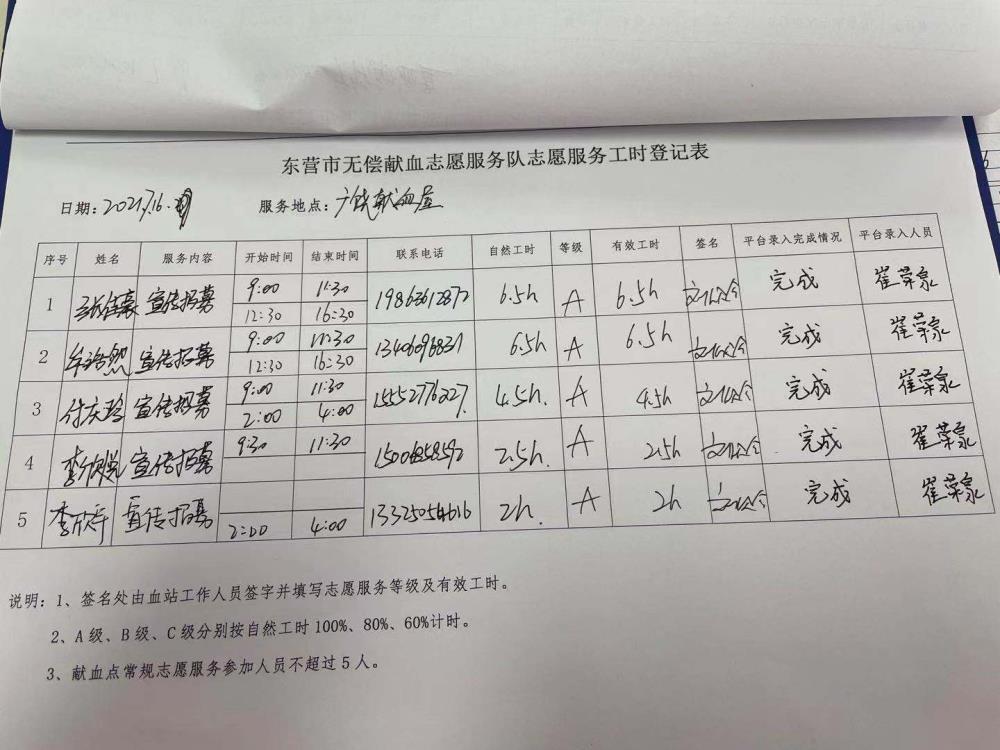 东营市无偿献血志愿服务队志愿服务工时登记表
日期：2021.7.16 服务地点：广饶献血屋
序号 姓名 服务内容 开始时间 结束时间 联系电话 自然工时 等级 有效工时 签名 平台录入完成情况 平台录入人员
1 宣传招募 9:00 11:30 19863612872 6.5h A 6.5h 完成 崔荣泉
12:30 16:30
2 牟浩然 宣传招募 9:00 11:30 13406096831 6.5h A 6.5h 完成 崔荣泉
12:30 16:30
3 付庆玲 宣传招募 9:00 11:30 15552776227 4.5h A 4.5h 完成 崔荣泉
2:00 4:00
4 李欣悦 宣传招募 9:30 11:30 15006858592 2.5h. A 2.5h 完成 崔荣泉
5 李欣 宣传招募 2:00 4:00 2h. A 2h 完成 崔荣泉
说明：1、签名处由血站工作人员签字并填写志愿服务等级及有效工时。
2、A级、B级、C级分别按自然工时100%、80%、60%计时。
3、献血点常规志愿服务参加人员不超过5人。